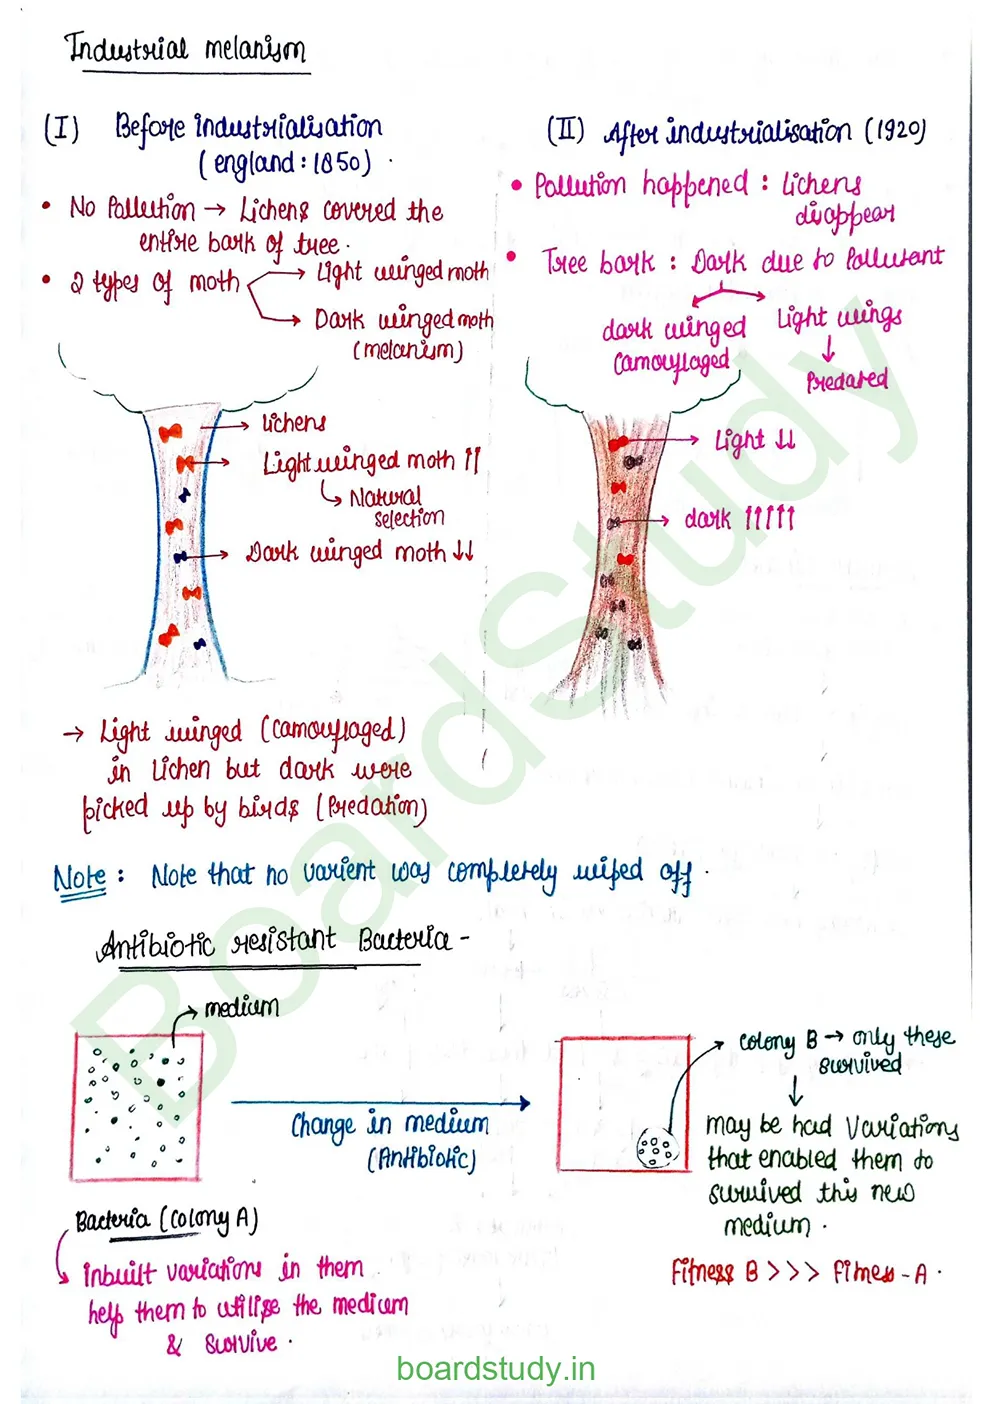 Industrial melanism
(I) Before industrialisation
(england : 1850) .
• No Pollution → Lichens covered the
entire bark of tree .
• 2 types of moth → Light winged moth
→ Dark winged moth
(melanism)
→ lichens
→ Light winged moth ↑↑
↳ Natural
selection
→ Dark winged moth ↓↓
→ Light winged (Camouflaged)
in lichen but dark were
picked up by birds (Predation)
(II) After industrialisation (1920)
• Pollution happened : Lichens
disappear
• Tree bark : Dark due to Pollutant
dark winged
Camouflaged
Light wings
↓
Predated
→ Light ↓↓
→ dark ↑↑↑↑↑
Note : Note that no varient was completely wiped off .
Antibiotic resistant Bacteria -
→ medium
Change in medium
(Antibiotic)
Bacteria (Colony A)
↳ inbuilt variations in them
help them to utilise the medium
& survive .
Colony B → only these
survived
↓
may be had variations
that enabled them to
survived this new
medium .
Fitness B >>> Fitness - A .
BoardStudy
boardstudy.in